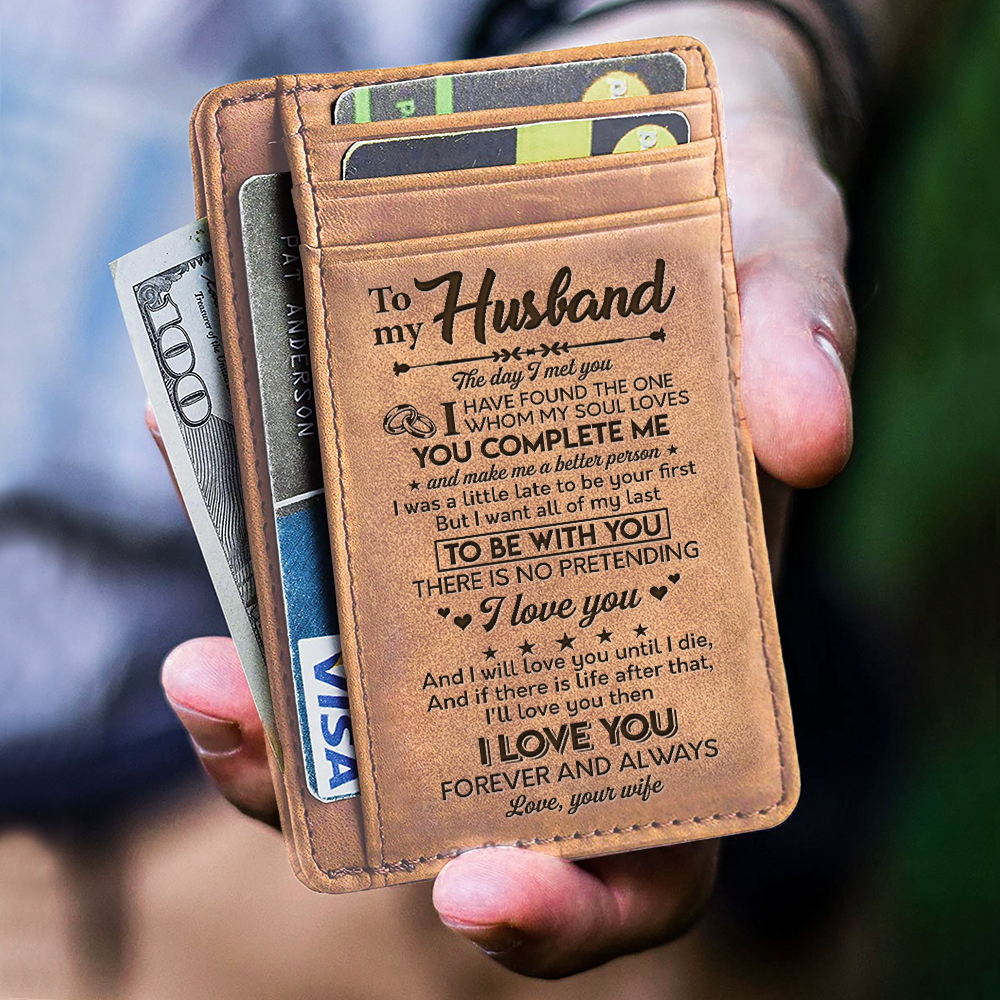 P
P
PAT ANDERSON
Treasurer of the
100
VISA
To my Husband
The day I met you
I HAVE FOUND THE ONE
WHOM MY SOUL LOVES
YOU COMPLETE ME
and make me a better person
I was a little late to be your first
But I want all of my last
TO BE WITH YOU
THERE IS NO PRETENDING
I love you
And I will love you until I die,
And if there is life after that,
I'll love you then
I LOVE YOU
FOREVER AND ALWAYS
Love, your wife